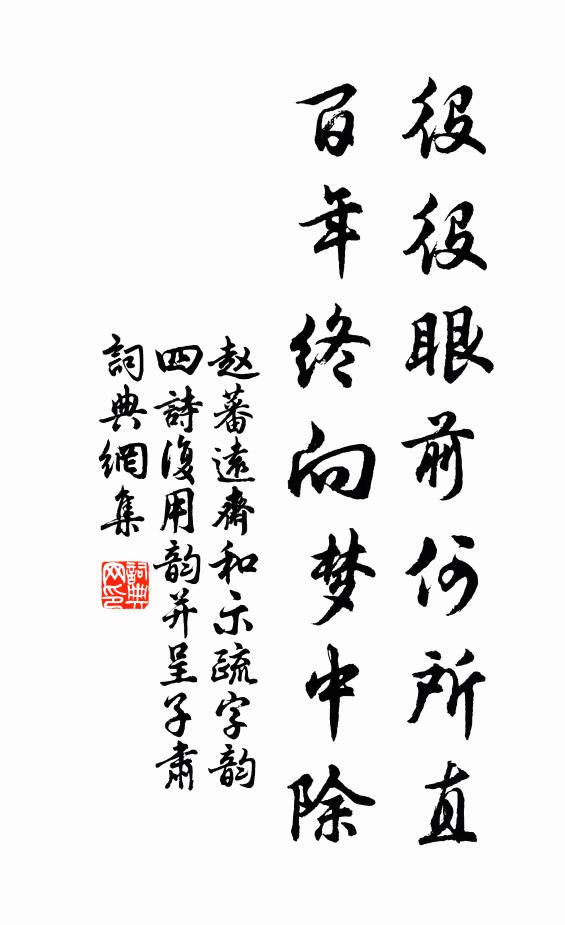 役役眼前何所直
百年终向梦中除
赵蕃遠齋和示疏字韵
四詩復用韵并呈子肅
詞典網集
詞典网印